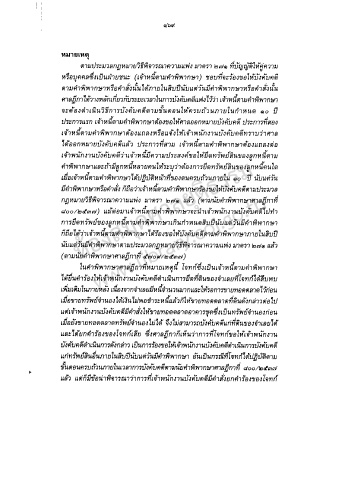 ๔๖๙
หมายเหตุ
ตามประมวลกฎหมายวิธีพิจารณาความแพ่ง มาตรา ๒๗๑ ที่บัญญัติให้คู่ความ
หรือบุคคลซึ่งเป็นฝ่ายชนะ (เจ้าหนี้ตามคำพิพากษา) ชอบที่จะร้องขอให้บังคับคดี
ตามคำพิพากษาหรือคำสั่งนั้นได้ภายในสิบปีนับแต่วันมีคำพิพากษาหรือคำสั่งนั้น
ศาลฎีกาได้วางหลักเกี่ยวกับระยะเวลาในการบังคับคดีแพ่งไว้ว่า เจ้าหนี้ตามคำพิพากษา
จะต้องดำเนินวิธีการบังคับคดีตามขั้นตอนให้ครบถ้วนภายในกำหนด ๑๐ ปี
ประการแรก เจ้าหนี้ตามคำพิพากษาต้องขอให้ศาลออกหมายบังคับคดี ประการที่สอง
เจ้าหนี้ตามคำพิพากษาต้องแถลงหรือแจ้งให้เจ้าพนักงานบังคับคดีทราบว่าศาล
ได้ออกหมายบังคับคดีแล้ว ประการที่สาม เจ้าหนี้ตามคำพิพากษาต้องแถลงต่อ
เจ้าพนักงานบังคับคดีว่าเจ้าหนี้มีความประสงค์ขอให้ยึดทรัพย์สินของลูกหนี้ตาม
คำพิพากษาและถ้ามีลูกหนี้หลายคนให้ระบุว่าต้องการยึดทรัพย์สินของลูกหนี้คนใด
เมื่อเจ้าหนี้ตามคำพิพากษาได้ปฏิบัติหน้าที่ของตนครบถ้วนภายใน ๑๐ ปี นับแต่วัน
มีคำพิพากษาหรือคำสั่ง ก็ถือว่าเจ้าหนี้ตามคำพิพากษาร้องขอให้บังคับคดีตามประมวล
กฎหมายวิธีพิจารณาความแพ่ง มาตรา ๒๗๑ แล้ว (ตามนัยคำพิพากษาศาลฎีกาที่
๘๐๐/๒๕๓๗) แม้ต่อมาเจ้าหนี้ตามคำพิพากษาจะนำเจ้าพนักงานบังคับคดีไปทำ
การยึดทรัพย์ของลูกหนี้ตามคำพิพากษาเกินกำหนดสิบปีนับแต่วันมีคำพิพากษา
ก็ถือได้ว่าเจ้าหนี้ตามคำพิพากษาได้ร้องขอให้บังคับคดีตามคำพิพากษาภายในสิบปี
นับแต่วันมีคำพิพากษาตามประมวลกฎหมายวิธีพิจารณาความแพ่ง มาตรา ๒๗๑ แล้ว
(ตามนัยคำพิพากษาศาลฎีกาที่
ในคำพิพากษาศาลฎีกาที่หมายเหตุนี้ โจทก์ซึ่งเป็นเจ้าหนี้ตามคำพิพากษา
ได้ยื่นคำร้องให้เจ้าพนักงานบังคับคดีดำเนินการยึดที่ดินของจำเลยที่โจทก์ได้สืบพบ
เพิ่มเติมในภายหลัง เนื่องจากจำเลยมีหนี้จำนวนมากและให้รอการขายทอดตลาดไว้ก่อน
เมื่อขายทรัพย์จำนองได้เงินไม่พอชำระหนี้แล้วก็ให้ขายทอดตลาดที่ดินดังกล่าวต่อไป
แต่เจ้าพนักงานบังคับคดีมีคำสั่งให้ขายทอดตลาดอาคารชุดซึ่งเป็นทรัพย์จำนองก่อน
เมื่อยังขายทอดตลาดทรัพย์จำนองไม่ได้ จึงไม่สามารถบังคับคดีแก่ที่ดินของจำเลยได้
และได้ยกคำร้องของโจทก์เสีย ซึ่งศาลฎีกาก็เห็นว่าการที่โจทก์ขอให้เจ้าพนักงาน
บังคับคดีดำเนินการดังกล่าว เป็นการร้องขอให้เจ้าพนักงานบังคับคดีดำเนินการบังคับคดี
แก่ทรัพย์สินอื่นภายในสิบปีนับแต่วันมีคำพิพากษา อันเป็นกรณีที่โจทก์ได้ปฏิบัติตาม
ขั้นตอนครบถ้วนภายในเวลาการบังคับคดีตามนัยคำพิพากษาศาลฎีกาที่ ๘๐๐/๒๕๓๗
แล้ว แต่ก็มีข้อน่าพิจารณาว่าการที่เจ้าพนักงานบังคับคดีมีคำสั่งยกคำร้องของโจทก์